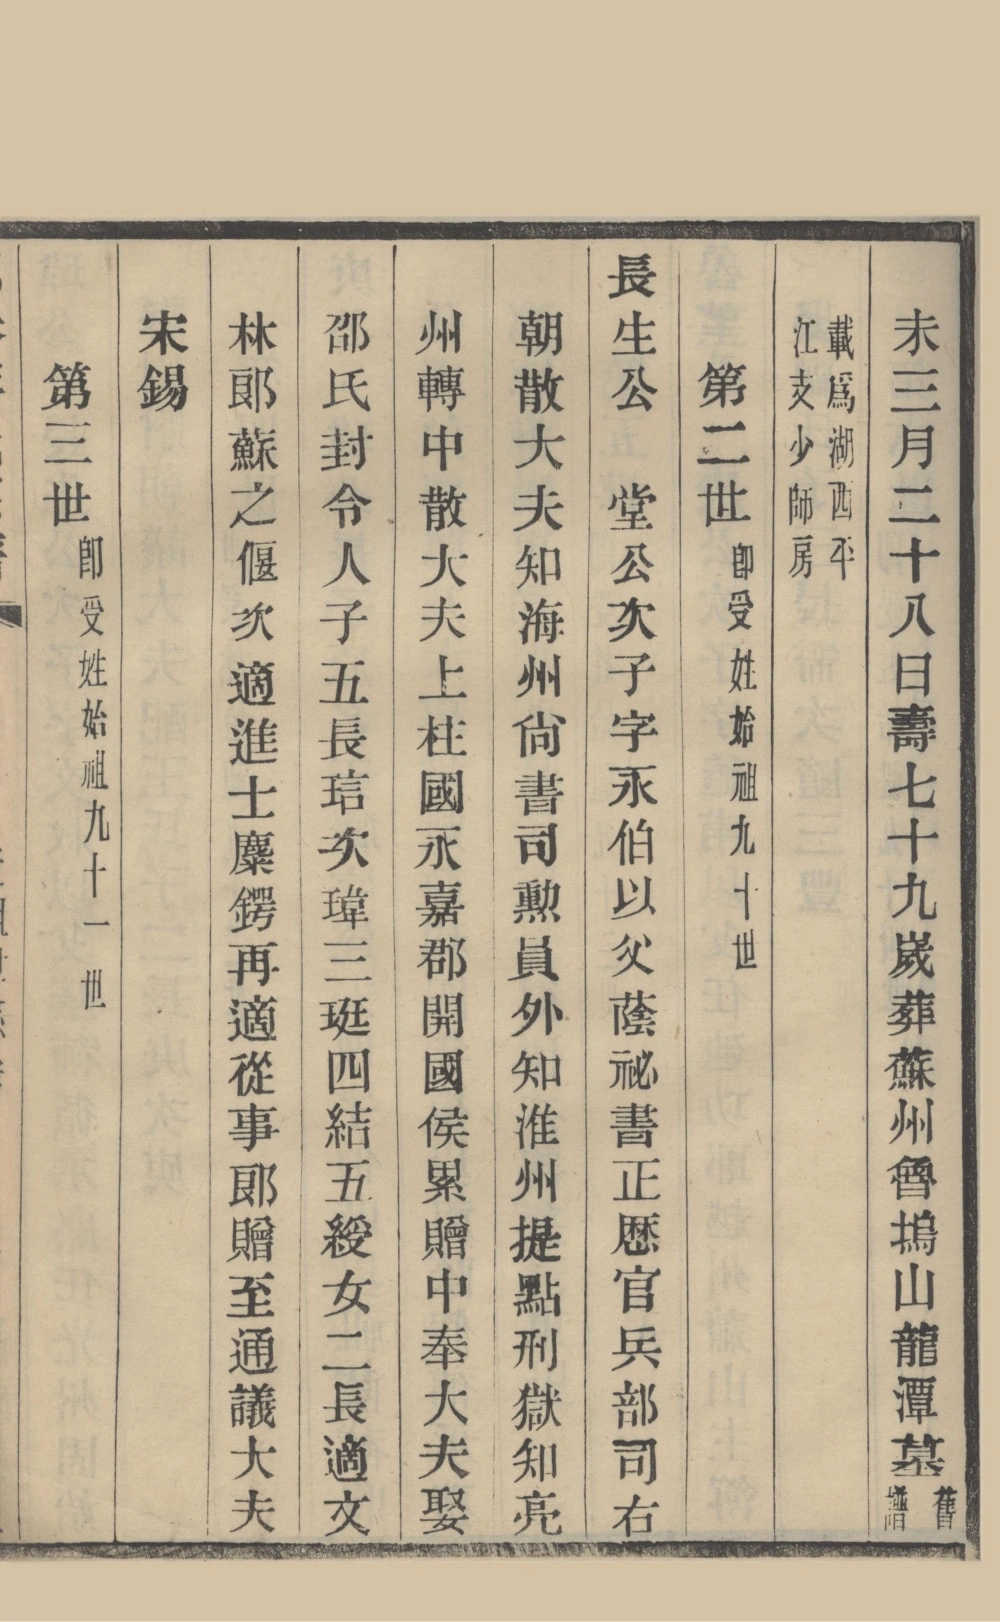 未三月二十八日壽七十九歲葬蘇州魯塢山龍潭墓舊譜
載爲湖西平
江支少師房
第二世卽受姓始祖九十世
長生公　堂公次子字永伯以父蔭祕書正歷官兵部司右
朝散大夫知海州尙書司勲員外知淮州提點刑獄知亮
州轉中散大夫上柱國永嘉郡開國侯累贈中奉大夫娶
邵氏封令人子五長琂次瑋三珽四結五綬女二長適文
林郞蘇之偃次適進士麋鍔再適從事郞贈至通議大夫
宋錫
第三世卽受姓始祖九十一世